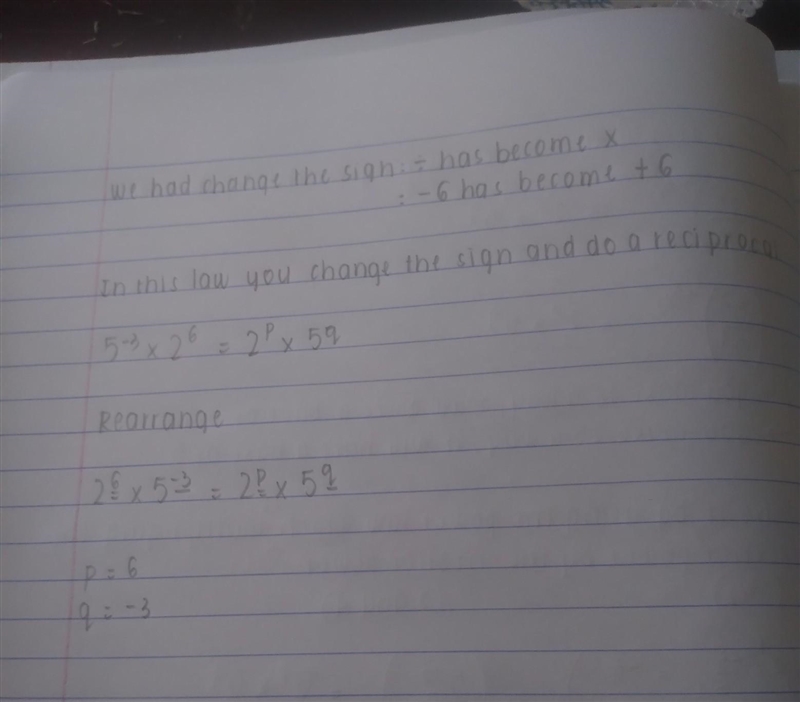 we had change the sign: ÷ has become x
: -6 has become +6
In this law you change the sign and do a reciprocal
5⁻³ x 2⁶ = 2ᵖ x 5q
Rearrange
2⁶ x 5⁻³ = 2ᵖ x 5q
p = 6
q = -3